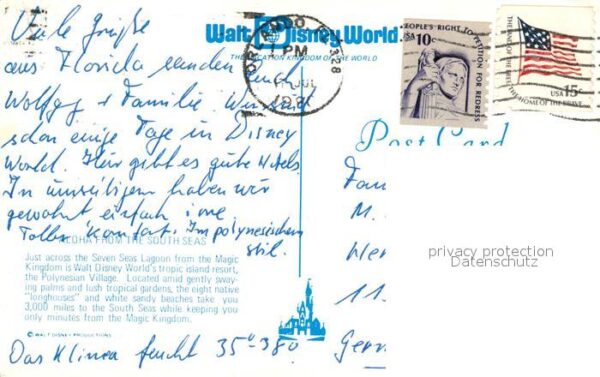 Walt Disney World
THE VACATION KINGDOM OF THE WORLD
ORLANDO
PM
JUL
1981
328
PEOPLE'S RIGHT TO PETITION FOR REDRESS
USA 10c
THE LAND OF THE FREE THE HOME OF THE BRAVE
USA 15c
Post Card
Viele Grüße
aus Florida senden Euch
Wolfgang + Familie. Wir sind
schon einige Tage in Disney
World. Hier gibt es gute Hotels
In unseligem haben wir
gewohnt einfach
Toller Komfort. Im polynesischen
Stil.
ALOHA FROM THE SOUTH SEAS
Just across the Seven Seas Lagoon from the Magic
Kingdom is Walt Disney World's tropic island resort,
the Polynesian Village. Located amid gently sway-
ing palms and lush tropical gardens, the eight native
"longhouses" and white sandy beaches take you
3,000 miles to the South Seas while keeping you
only minutes from the Magic Kingdom.
© WALT DISNEY PRODUCTIONS
Das Klima feucht 35°-38°
Fam
M.
Wer
11.
Germ
privacy protection
Datenschutz